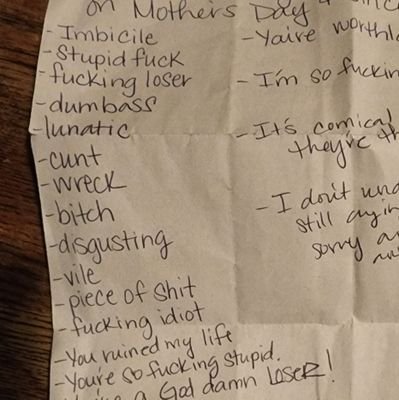 on Mothers Day
- Imbicile
- Stupid fuck
- fucking loser
- dumbass
- lunatic
- cunt
- wreck
- bitch
- disgusting
- vile
- piece of shit
- fucking idiot
- You ruined my life
- You're so fucking stupid.
a God damn loser!
- You're
- I'm so
- It's comical
they're
- I don't
still
sorry